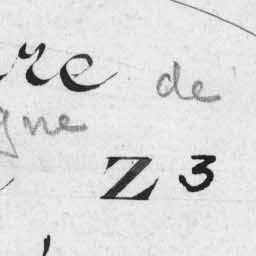 re de
gne
Z 3